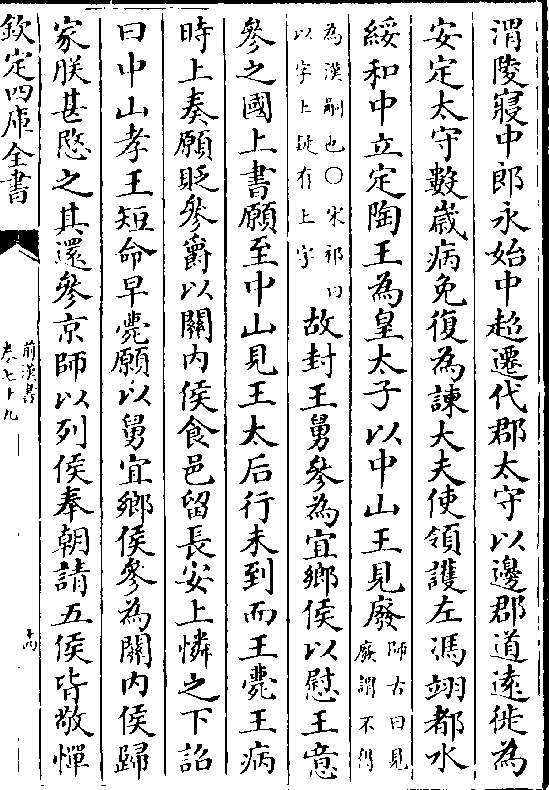 渭陵寢中郎永始中超遷代郡太守以邊郡道遠徙為
安定太守數歲病免復為諫大夫使領護左馮翊都水
綏和中立定陶王為皇太子以中山王見廢師古曰見廢謂不得
為漢嗣也〇宋祁曰以字上疑有上字故封王舅參為宜鄉侯以慰王意
參之國上書願至中山見王太后行未到而王薨王病
時上奏願貶參爵以關內侯食邑留長安上憐之下詔
曰中山孝王短命早薨願以舅宜鄉侯參為關內侯歸
家朕甚愍之其還參京師以列侯奉朝請五侯皆敬憚
欽定四庫全書
前漢書
卷七十九
十四